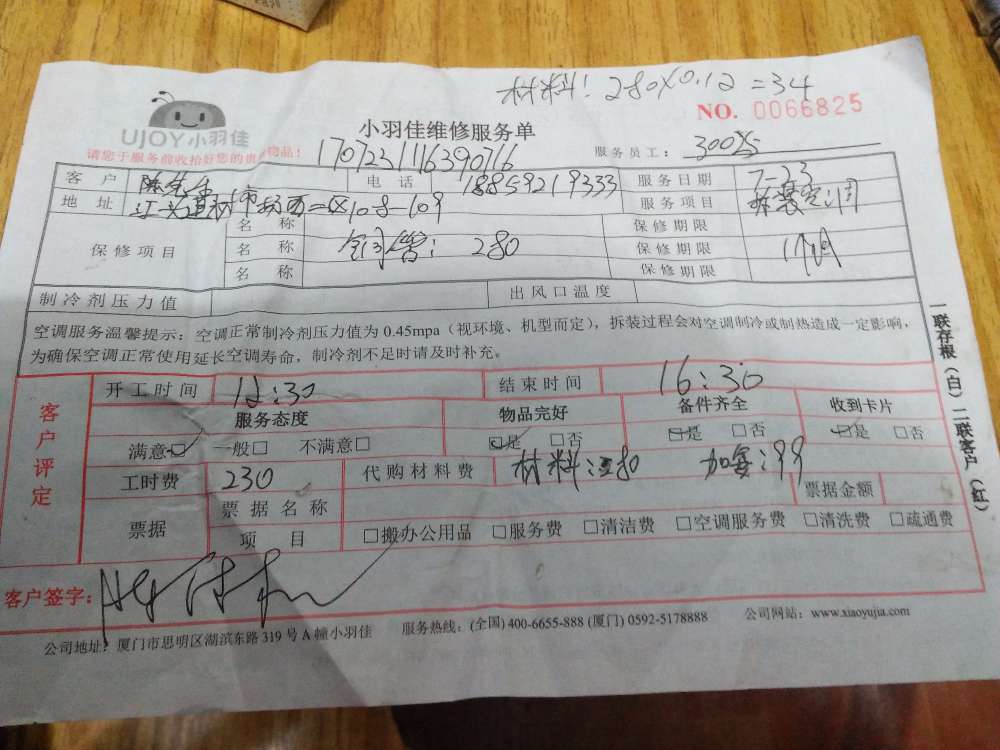 材料:280×0.12=34
NO. 0066825
UJOY小羽佳
小羽佳维修服务单
请您于服务前收拾好您的贵 物品!
170723111639076
服务员工:
客户 陈先生 电话 18859219333 服务日期 7-23
地址 市场西二区108-109 服务项目 拆装空调
保修项目
名称 保修期限
名称 铜管: 280 保修期限 1个月
名称 保修期限
制冷剂压力值 出风口温度
空调服务温馨提示:空调正常制冷剂压力值为 0.45mpa(视环境、机型而定),拆装过程会对空调制冷或制热造成一定影响,
为确保空调正常使用延长空调寿命,制冷剂不足时请及时补充。
一联存根(白)二联客户(红)
客户评定
开工时间 12:30 结束时间 16:30
服务态度 物品完好 备件齐全 收到卡片
满意□ 一般□ 不满意□ □是 □否 □是 □否 □是 □否
工时费 230 代购材料费 材料:280 99 票据金额
票据
票据名称
项目 □搬办公用品 □服务费 □清洁费 □空调服务费 □清洗费 □疏通费
客户签字:
公司地址:厦门市思明区湖滨东路 319 号 A 幢小羽佳 服务热线:(全国) 400-6655-888 (厦门) 0592-5178888 公司网站:www.xiaoyujia.com